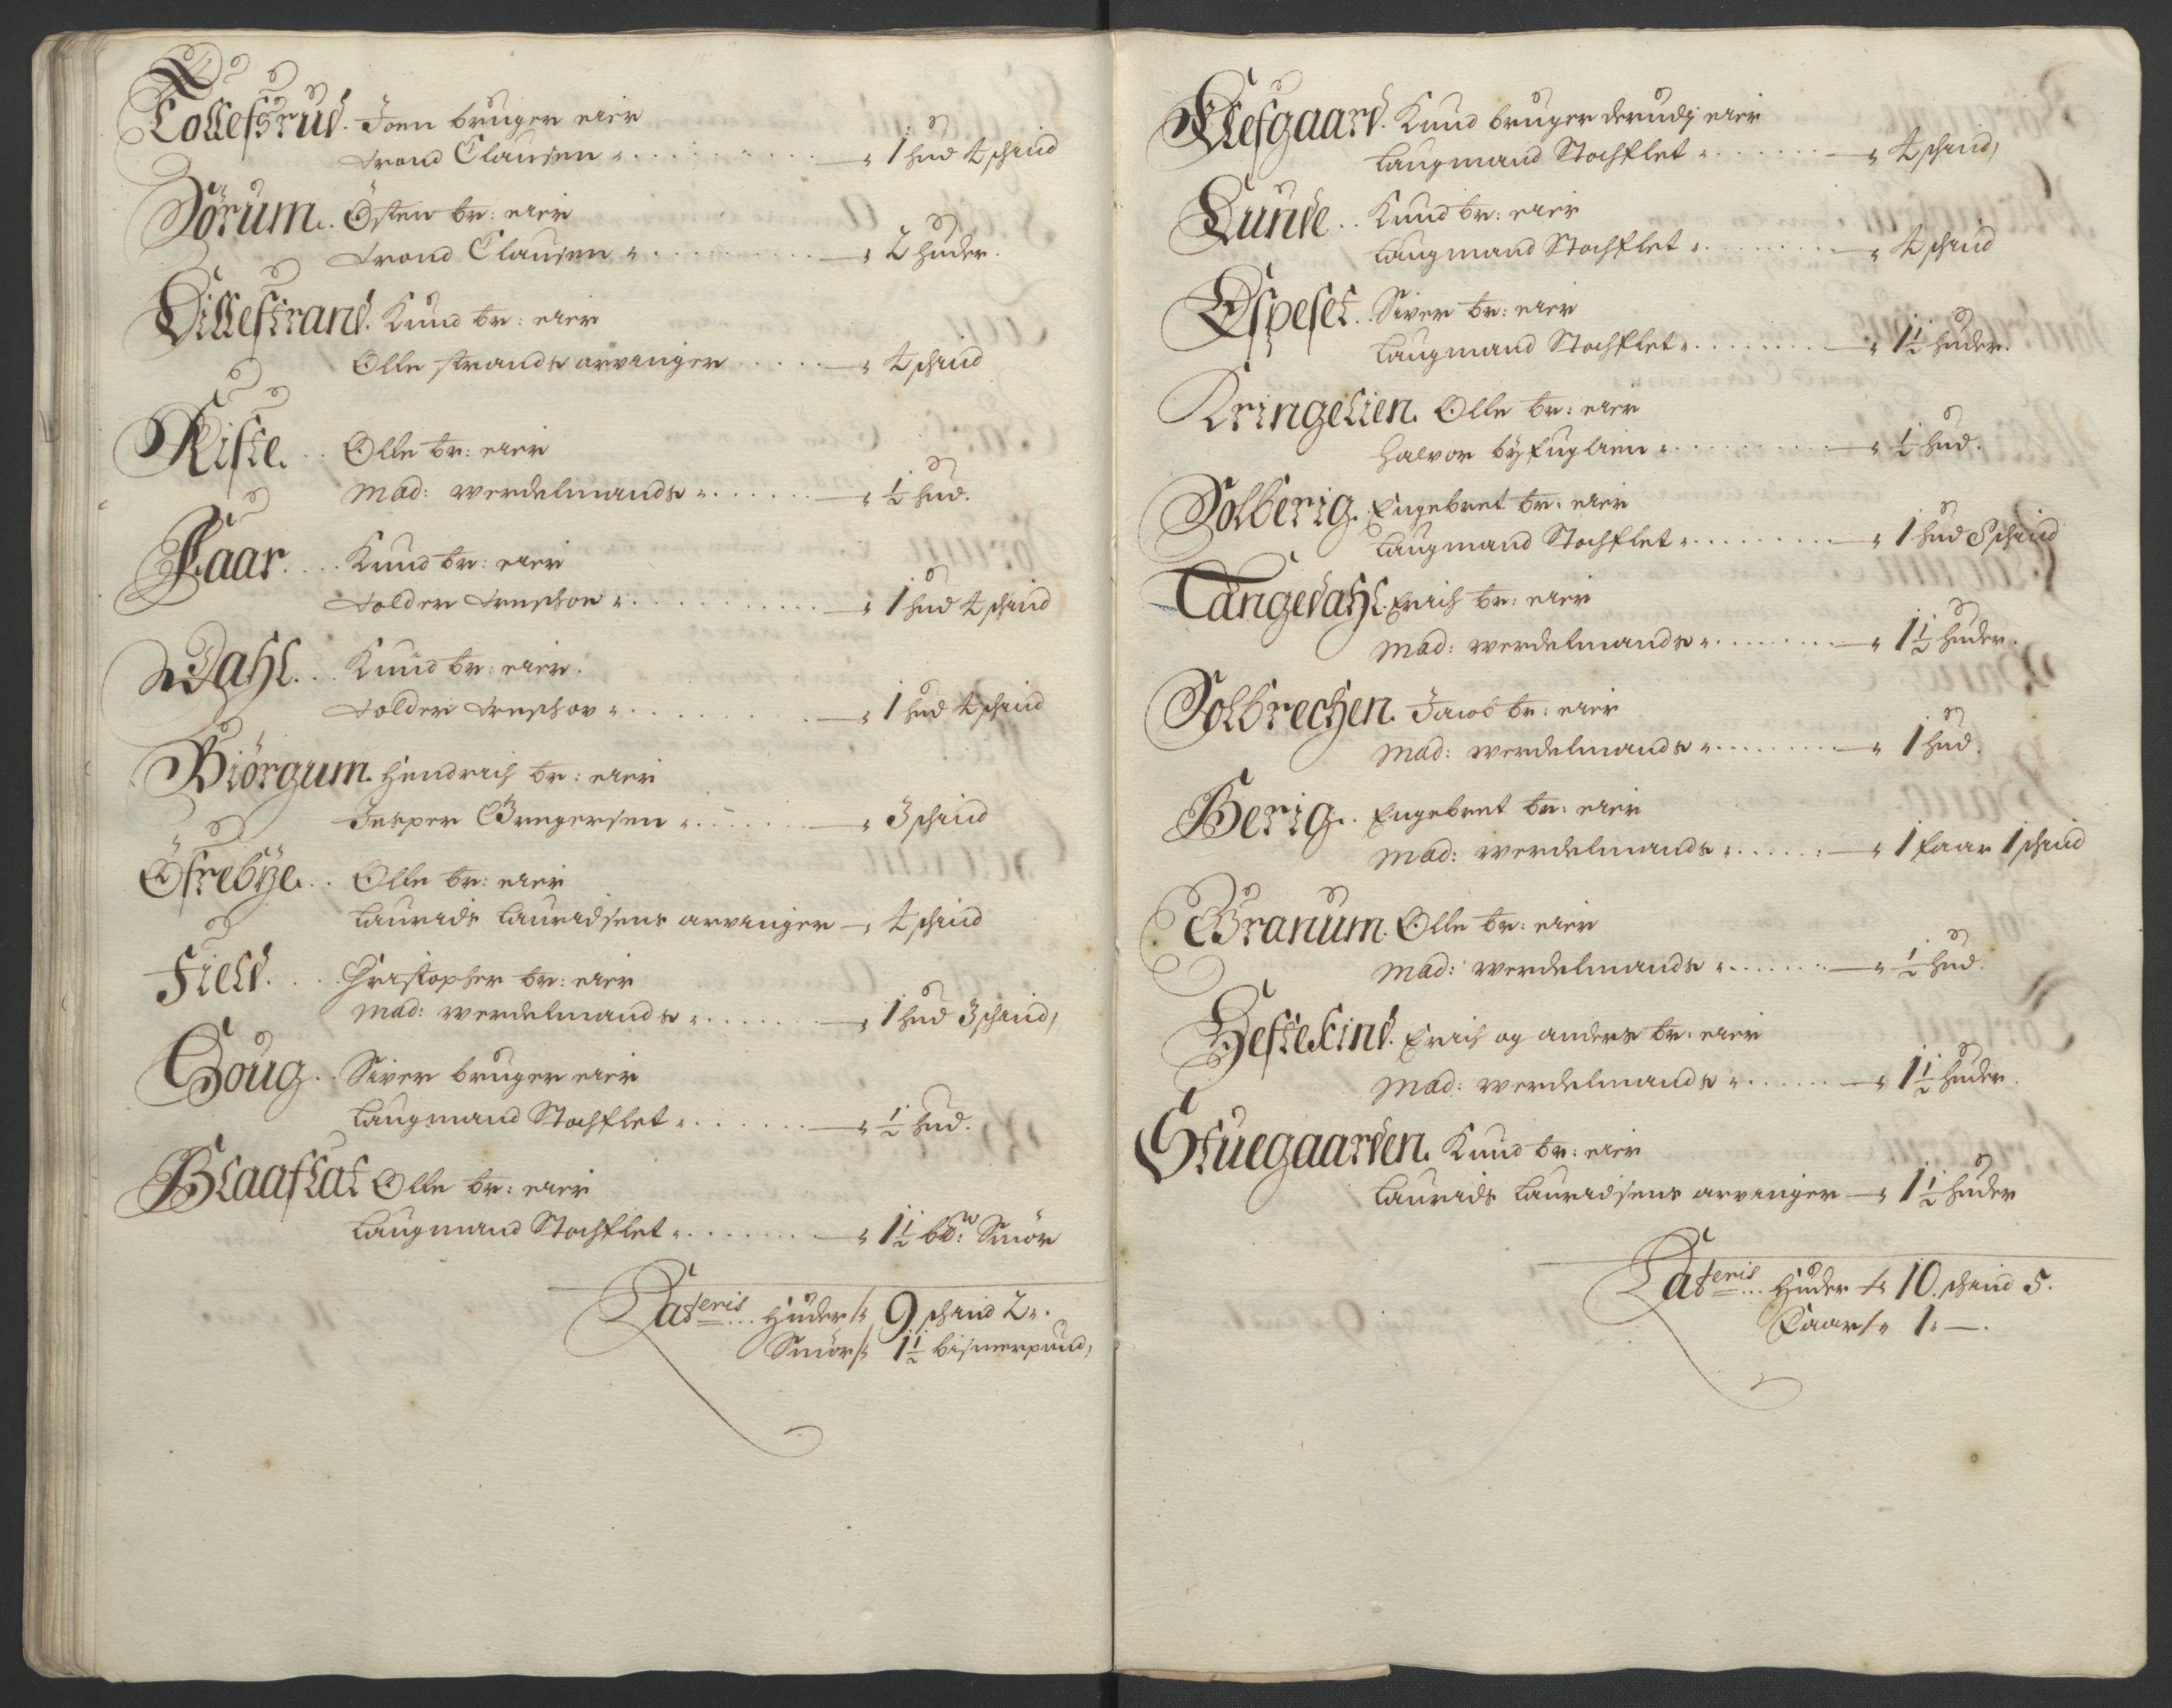 Tollefsrud. Joen bruger eier
Trond Clausen " 1 hud 4 skind
Sörum. Östen br: eier
Trond Clausen " 2 huder.
Lillestrand. Knud br: eier
Olle strands arvinger 4 skind
Riste. Olle br: eier
Mad: Werdelmands " ½ hud.
Faar. Knud br: eier
Tolder Treschov " 1 hud 4 skind
Dahl. Knud br: eier.
Tolder Treschov " 1 hud 4 skind
Biörgum. Hendrich br: eier
Jesper Gregersen " 3 skind
Öfrebÿe. Olle br: eier
Laurids Lauridsens arvinger 4 skind
Field. Christopher br: eier
Mad: Werdelmands " 1 hud 3 skind,
Houg. Siver bruger eier
Laugmand Stockflet " ½ hud.
Blaaflat Olle br: eier
Laugmand Stockflet " 1½ bd: Smör
Lateris Huder 9 skind 2 ".
Smör 1½ bismerpund,
Ellefsgaard. Knud bruger derudj eier
Laugmand Stockflet " 4 skind,
Lunde. Knud br: eier
Laugmand Stockflet " 4 skind
Espeset. Siver br: eier
Laugmand Stockflet " 1½ huder.
Kringelien. Olle br: eier
Halvor bÿfuglien " ½ hud.
Solberig. Engebret br: eier
Laugmand Stockflet " 1 hud 8 skind
Tangedahl. Erich br: eier
Mad: Werdelmands " 1½ huder.
Solbrechen. Jacob br: eier
Mad: Werdelmands " 1 hud.
Berig. Engebret br: eier
Mad: Werdelmands " 1 faar 1 skind
Granum. Olle br: eier
Mad: Werdelmands " ½ hud.
Hestekind. Erich og anders br: eier
Mad: Werdelmands " 1½ huder.
Struegaarden. Knud br: eier
Laurids Lauridsens arvinger 1½ huder
Lateris Huder 10. skind 5.
Faar 1 " —.